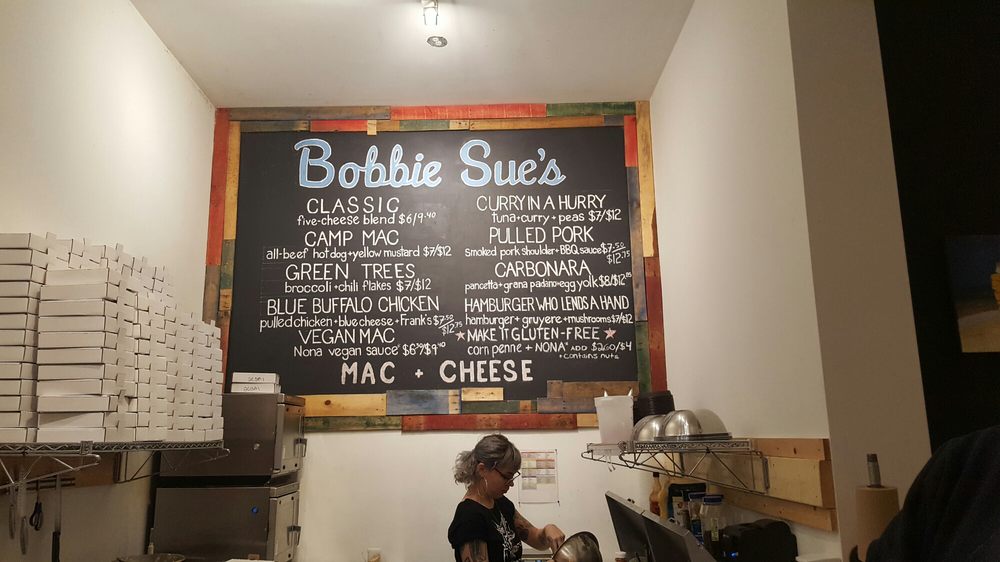 Bobbie Sue's
CLASSIC
five-cheese blend $6/9.40
CAMP MAC
all-beef hotdog+yellow mustard $7/$12
GREEN TREES
broccoli+chili flakes $7/$12
BLUE BUFFALO CHICKEN
pulled chicken+blue cheese+Frank's $7.50
$12.75
VEGAN MAC
Nona vegan sauce*
CURRY IN A HURRY
tuna+curry+peas $7/$12
PULLED PORK
Smoked pork shoulder+BBQ sauce $7.50
$12.75
CARBONARA
pancetta+grana padano+egg yolk $8/$12.85
HAMBURGER WHO LENDS A HAND
hamburger+gruyere+mushrooms $7/$12
★MAKE IT GLUTEN-FREE★
corn penne + NONA* ADD $2.60/$4
*contains nuts
MAC + CHEESE